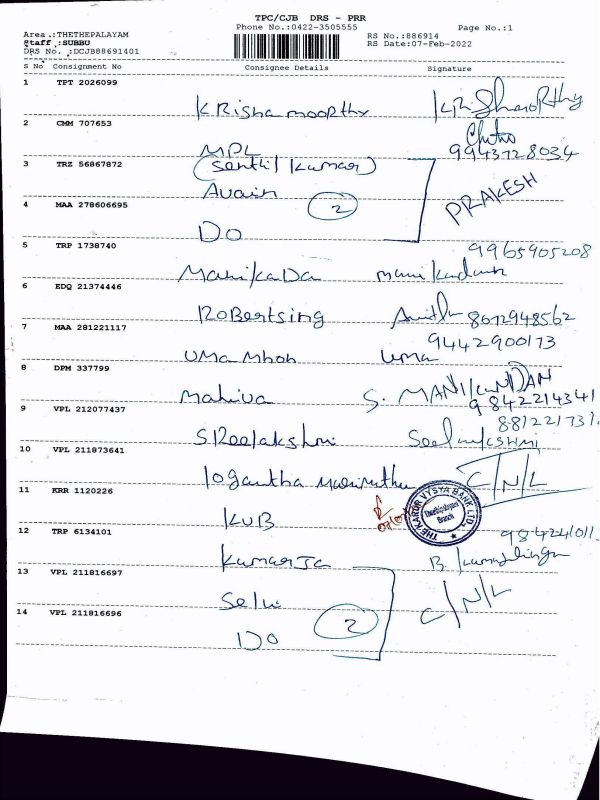 TPC/CJB DRS - PRR
Phone No.:0422-3505555 Page No.:1
Area .:THETHEPALAYAM
Staff .:SUBBU RS No.:886914
DRS No. :DCJB88691401 RS Date:07-Feb-2022
S No Consignment No Consignee Details Signature
1 TPT 2026099
KRisha mooRthy
2 CMM 707653
MPL 9943728034
3 TRZ 56867872 (Senthil kumar)
Avain PRAKESH
4 MAA 278606695 2
Do
5 TRP 1738740 9965905208
ManikaDa manikandan
6 EDQ 21374446
RoBertsing 8012948562
7 MAA 281221117 9442900173
Uma Mhoh Uma
8 DPM 337799
Mahiva S. MANIKANDAN
9 VPL 212077437 9842214341
SReelakshmi
10 VPL 211873641
logantha C/N/L
11 KRR 1120226 THE KARUR VYSYA BANK LTD.
Thethipalayam Branch
KUB
12 TRP 6134101
kumarJa
13 VPL 211816697
Selvi C/N/L
14 VPL 211816696 2
Do